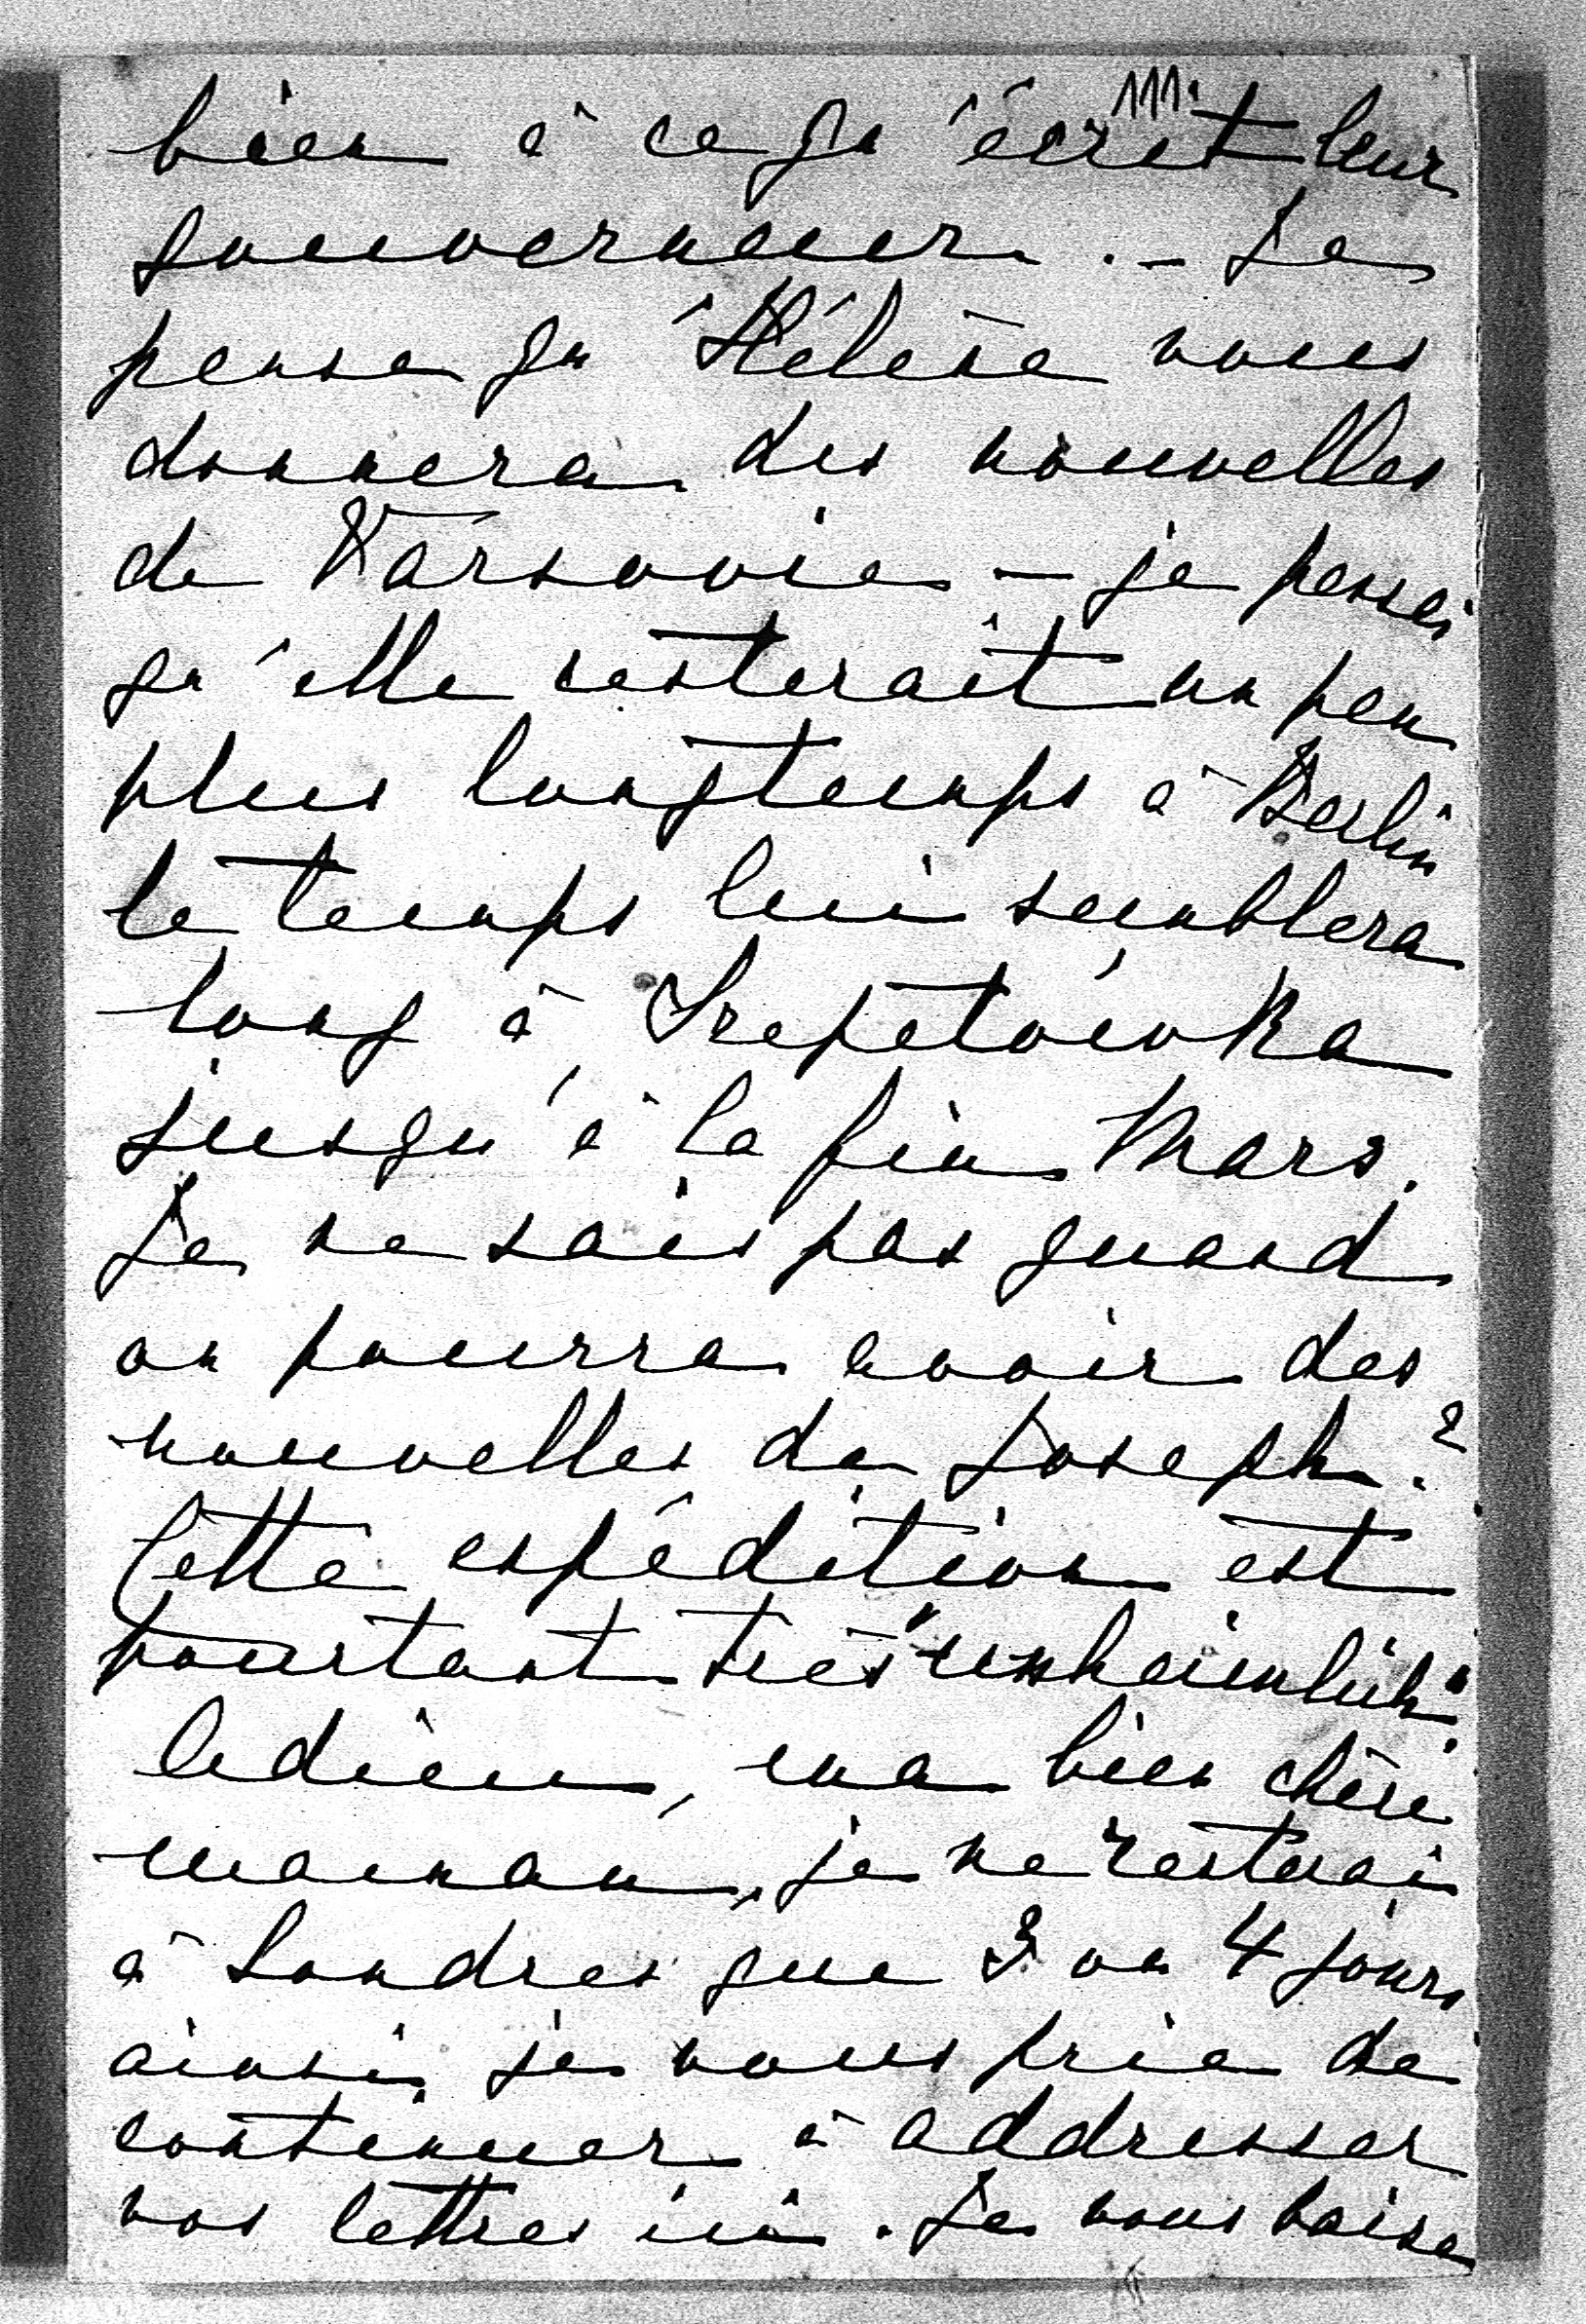 111.
bien à ce qu'écrit leur
gouverneur. – Je
pense qu'Hélène vous
donnera des nouvelles
de Varsovie – je pensai
qu'elle resterait un peu
plus longtemps à Berlin
le temps lui semblera
long à Szepetówka
jusqu'à la fin Mars.
Je ne sais pas quand
on pourra avoir des
nouvelles de Joseph?
Cette expédition est
pourtant très "unheimlich".
Adieu, ma bien chère
maman, je ne resterai
à Londres que 3 ou 4 jours
ainsi je vous prie de
continuer à addresser
vos lettres ici. Je vous baise